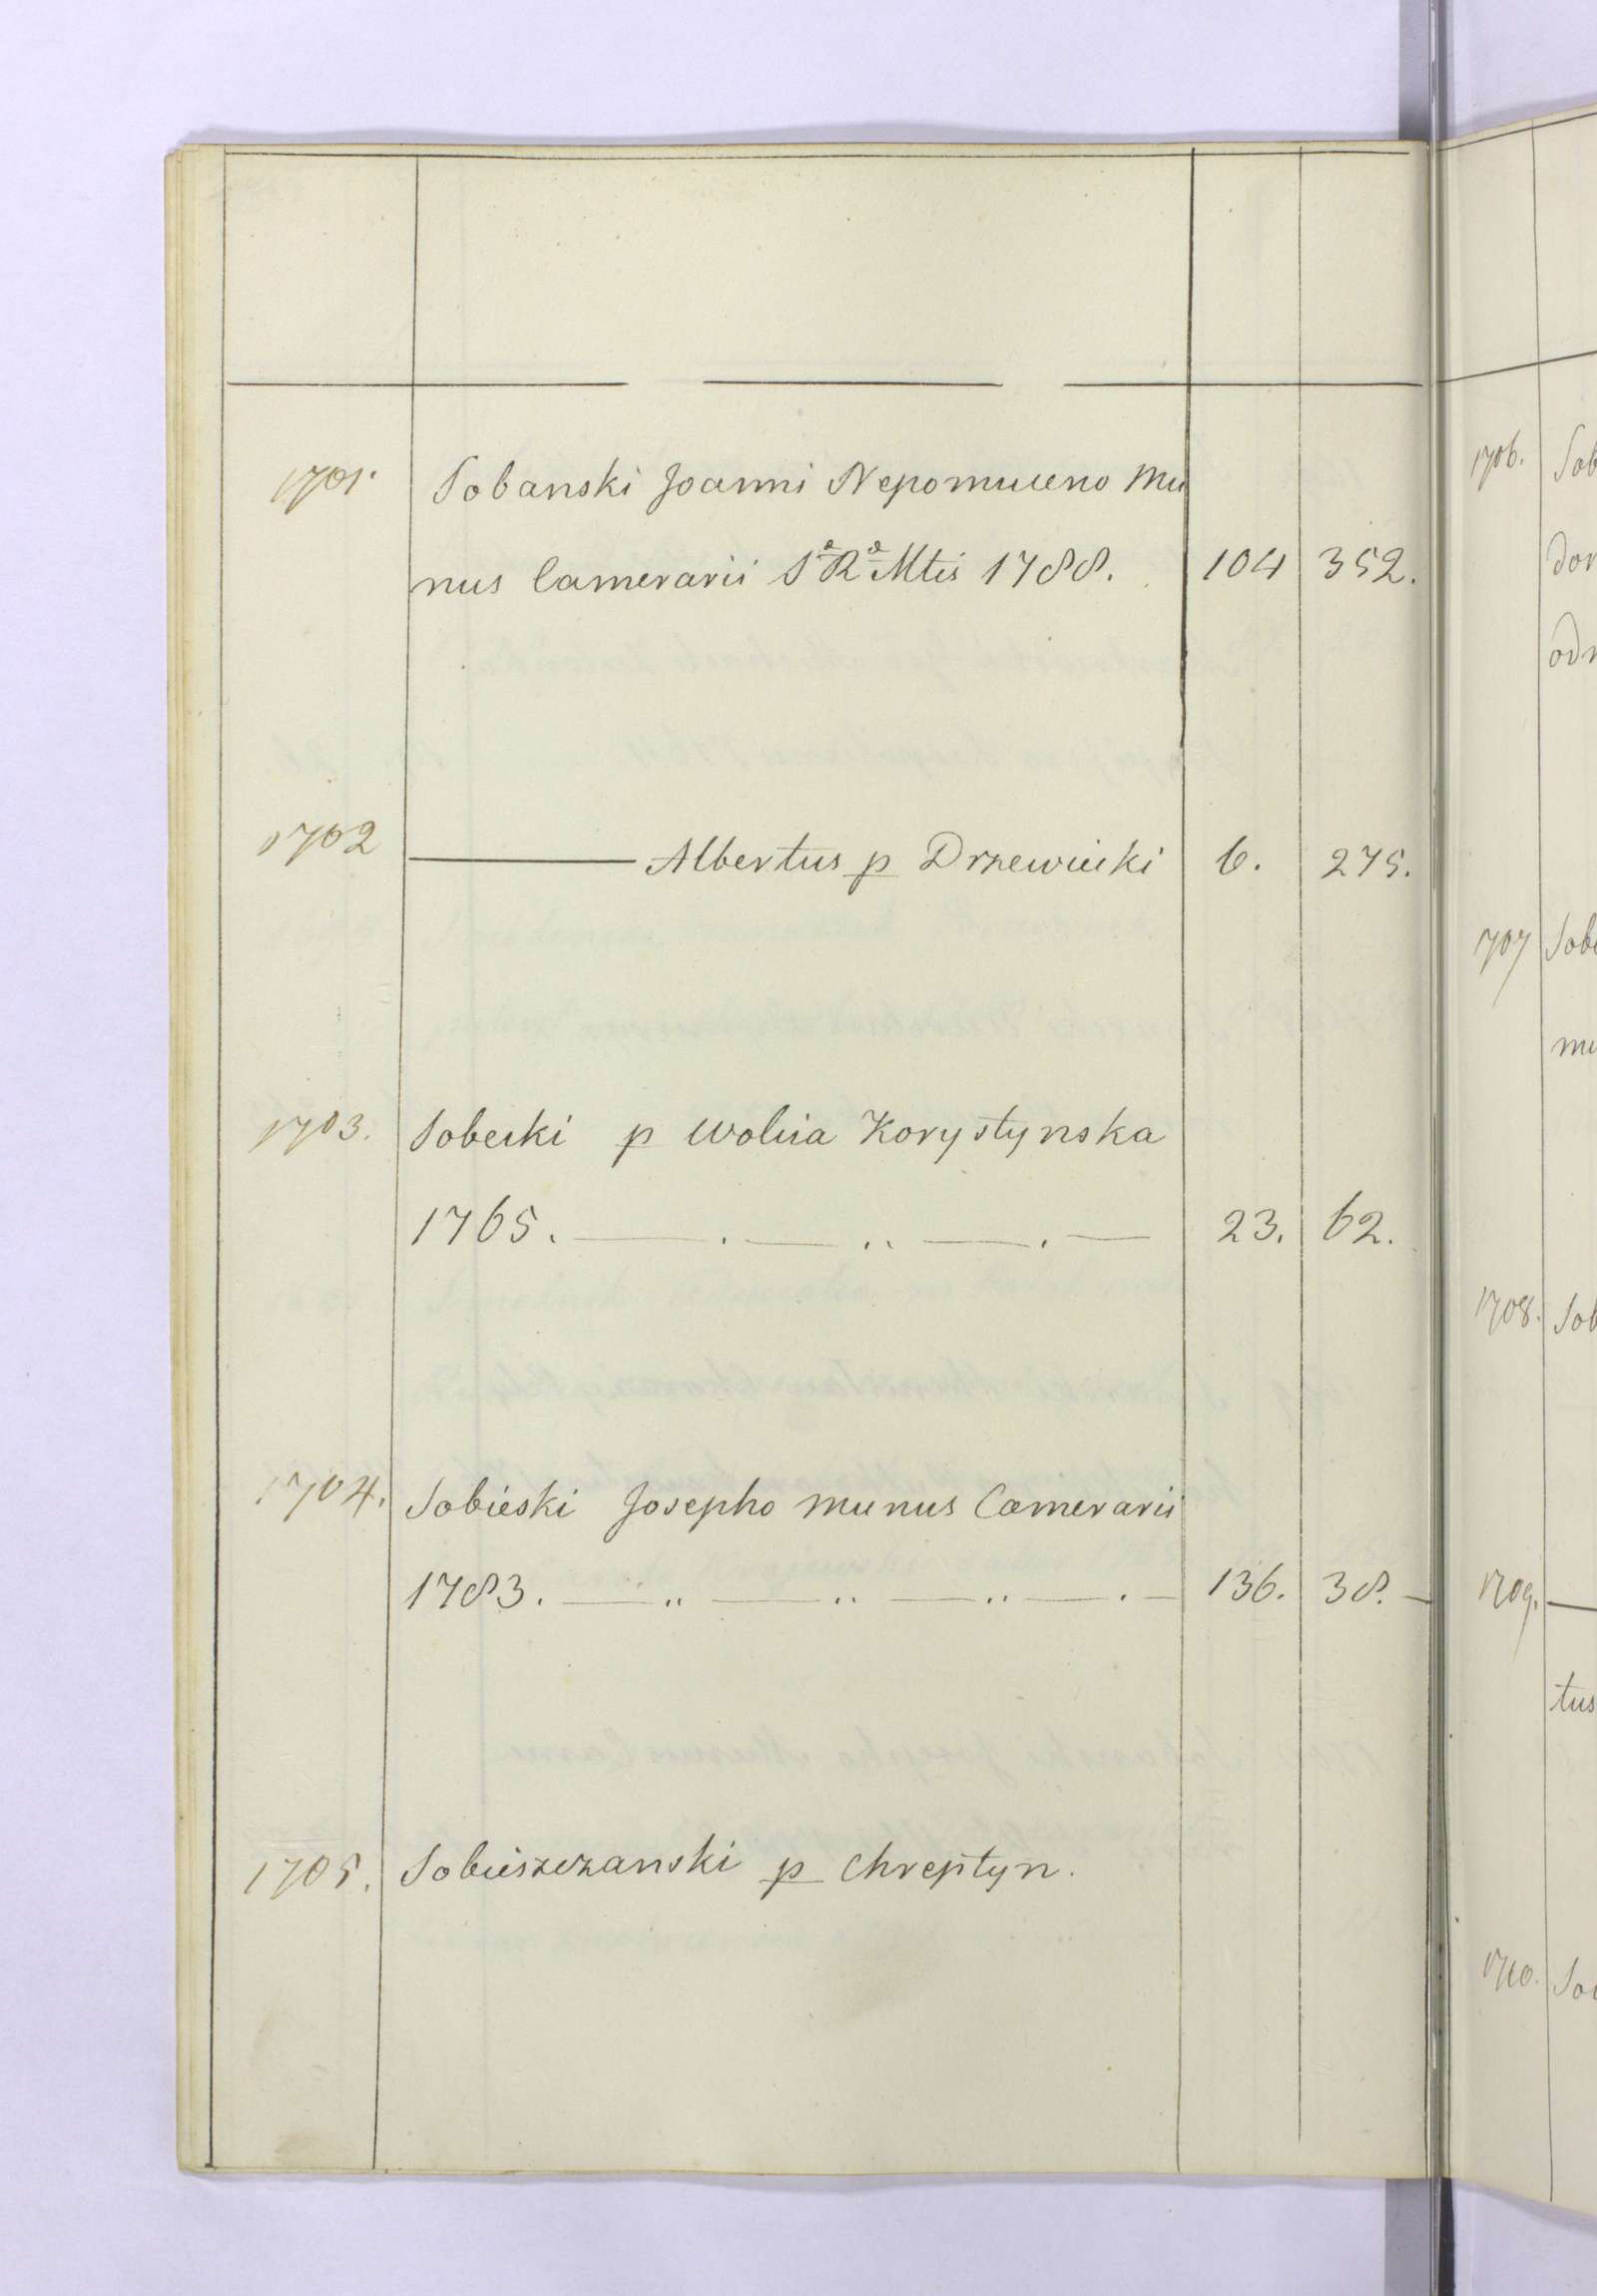 1701. Sobanski Joanni Nepomuceno Mu
nus Camerarii S^æ R^æ Mtis 1788. 104 352.
1702 ——— Albertus p Drzewiecki 6. 275.
1703. Sobecki p Wolica Korystynska
1765. — . — .. — . — 23. 62.
1704. Sobieski Josepho munus Camerarii
1783. — .. — .. — .. — . — 136. 38. —
1705. Sobieszczanski p Chreptyn.
1706. Sob
dor
odn
1707 Sobi
mu
1708. Sob
1709. —
tus
1710. Soc